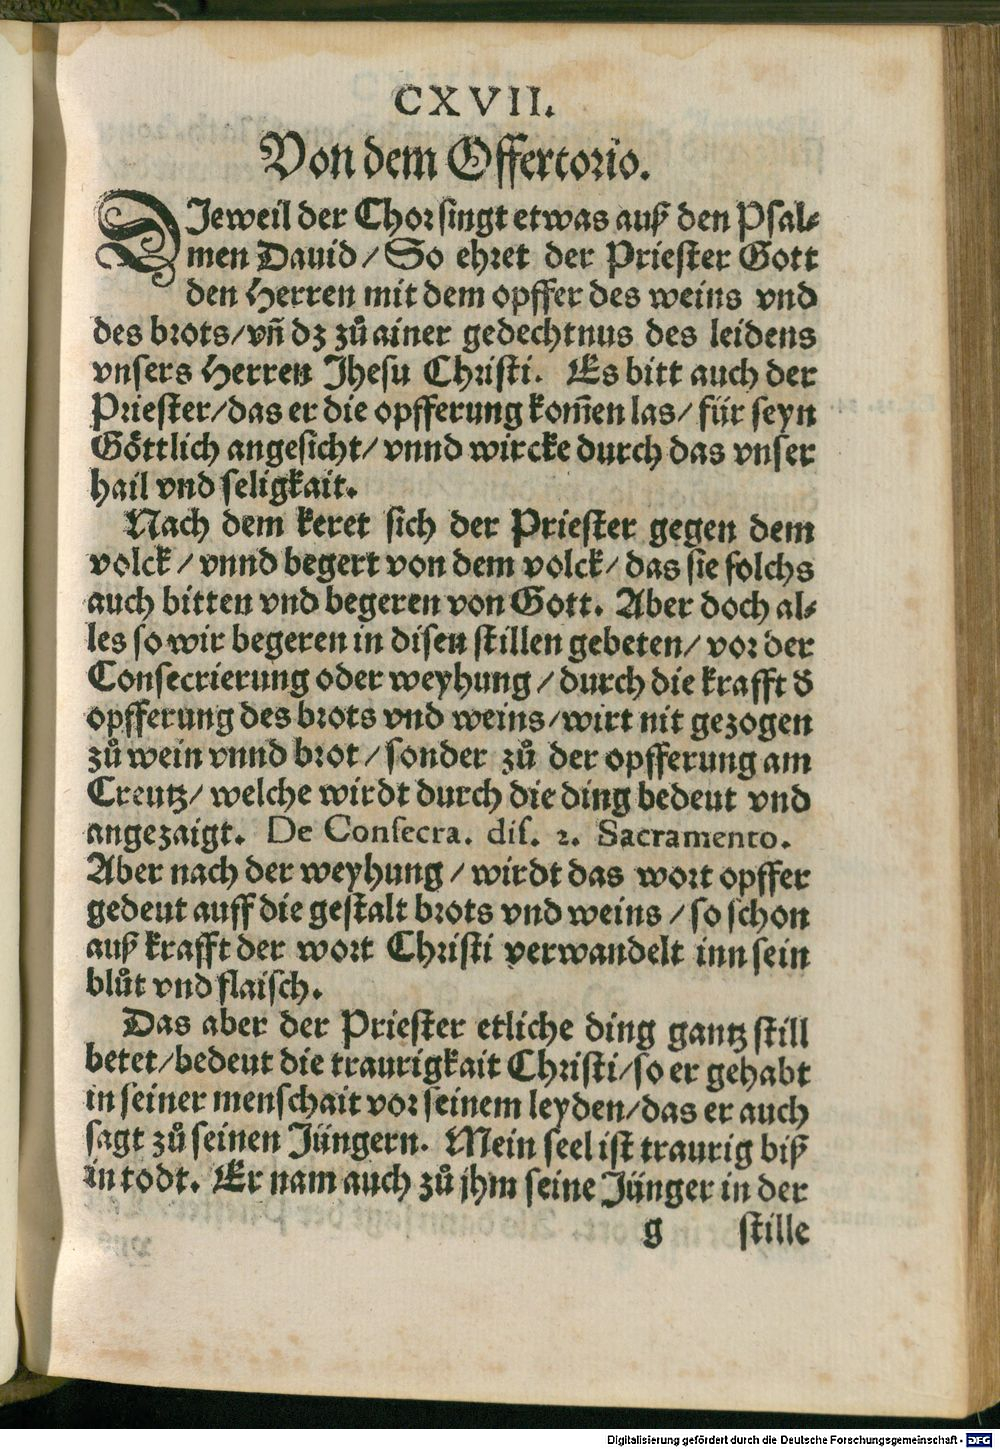 CXVII.
Von dem Offertorio.
DJeweil der Chor singt etwas auß den Psal⸗
men Dauid / So ehret der Priester Gott
den Herren mit dem opffer des weins vnd
des brots/vñ dz zů ainer gedechtnus des leidens
vnsers Herren Jhesu Christi. Es bitt auch der
Priester/das er die opfferung kom̃en las/ für seyn
Göttlich angesicht/ vnnd wircke durch das vnser
hail vnd seligkait.
Nach dem keret sich der Priester gegen dem
volck / vnnd begert von dem volck/ das sie solchs
auch bitten vnd begeren von Gott. Aber doch al⸗
les so wir begeren in disen stillen gebeten/ vor der
Consecrierung oder weyhung / durch die krafft d̕
opfferung des brots vnd weins/wirt nit gezogen
zů wein vnnd brot / sonder zů der opfferung am
Creutz/ welche wirdt durch die ding bedeut vnd
angezaigt. De Consecra. dis. 2. Sacramento.
Aber nach der weyhung / wirdt das wort opffer
gedeut auff die gestalt brots vnd weins / so schon
auß krafft der wort Christi verwandelt inn sein
blůt vnd flaisch.
Das aber der Priester etliche ding gantz still
betet/bedeut die traurigkait Christi/so er gehabt
in seiner menschait vor seinem leyden/das er auch
sagt zů seinen Jüngern. Mein seel ist traurig biß
in todt. Er nam auch zů jhm seine Jünger in der
g stille
Digitalisierung gefördert durch die Deutsche Forschungsgemeinschaft - DFG